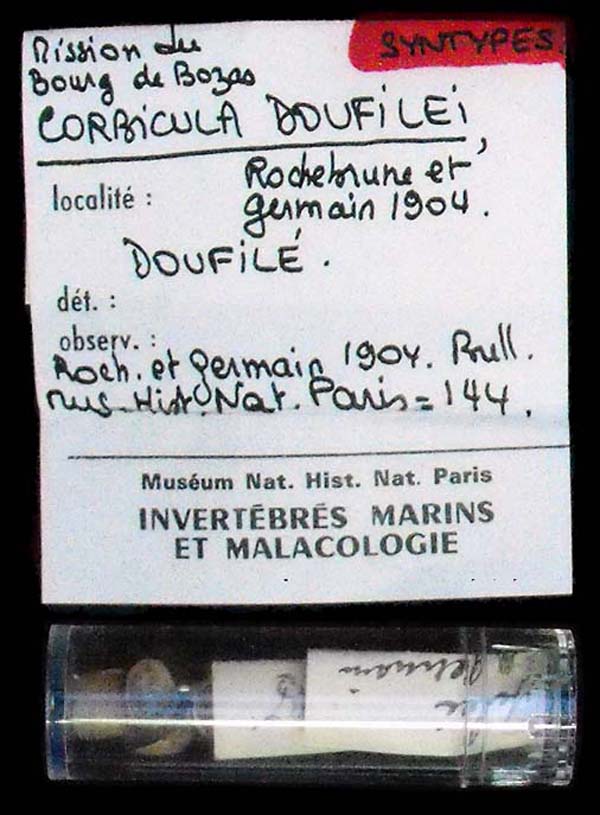 SYNTYPES.
Mission du
Bourg de Bozas
CORBICULA DOUFILEI,
Rochebrune et
localité : germain 1904.
DOUFILÉ.
dét. :
observ. :
Roch. et germain 1904. Bull.
Mus. Hist. Nat. Paris = 144.
Muséum Nat. Hist. Nat. Paris
INVERTÉBRÉS MARINS
ET MALACOLOGIE
germain